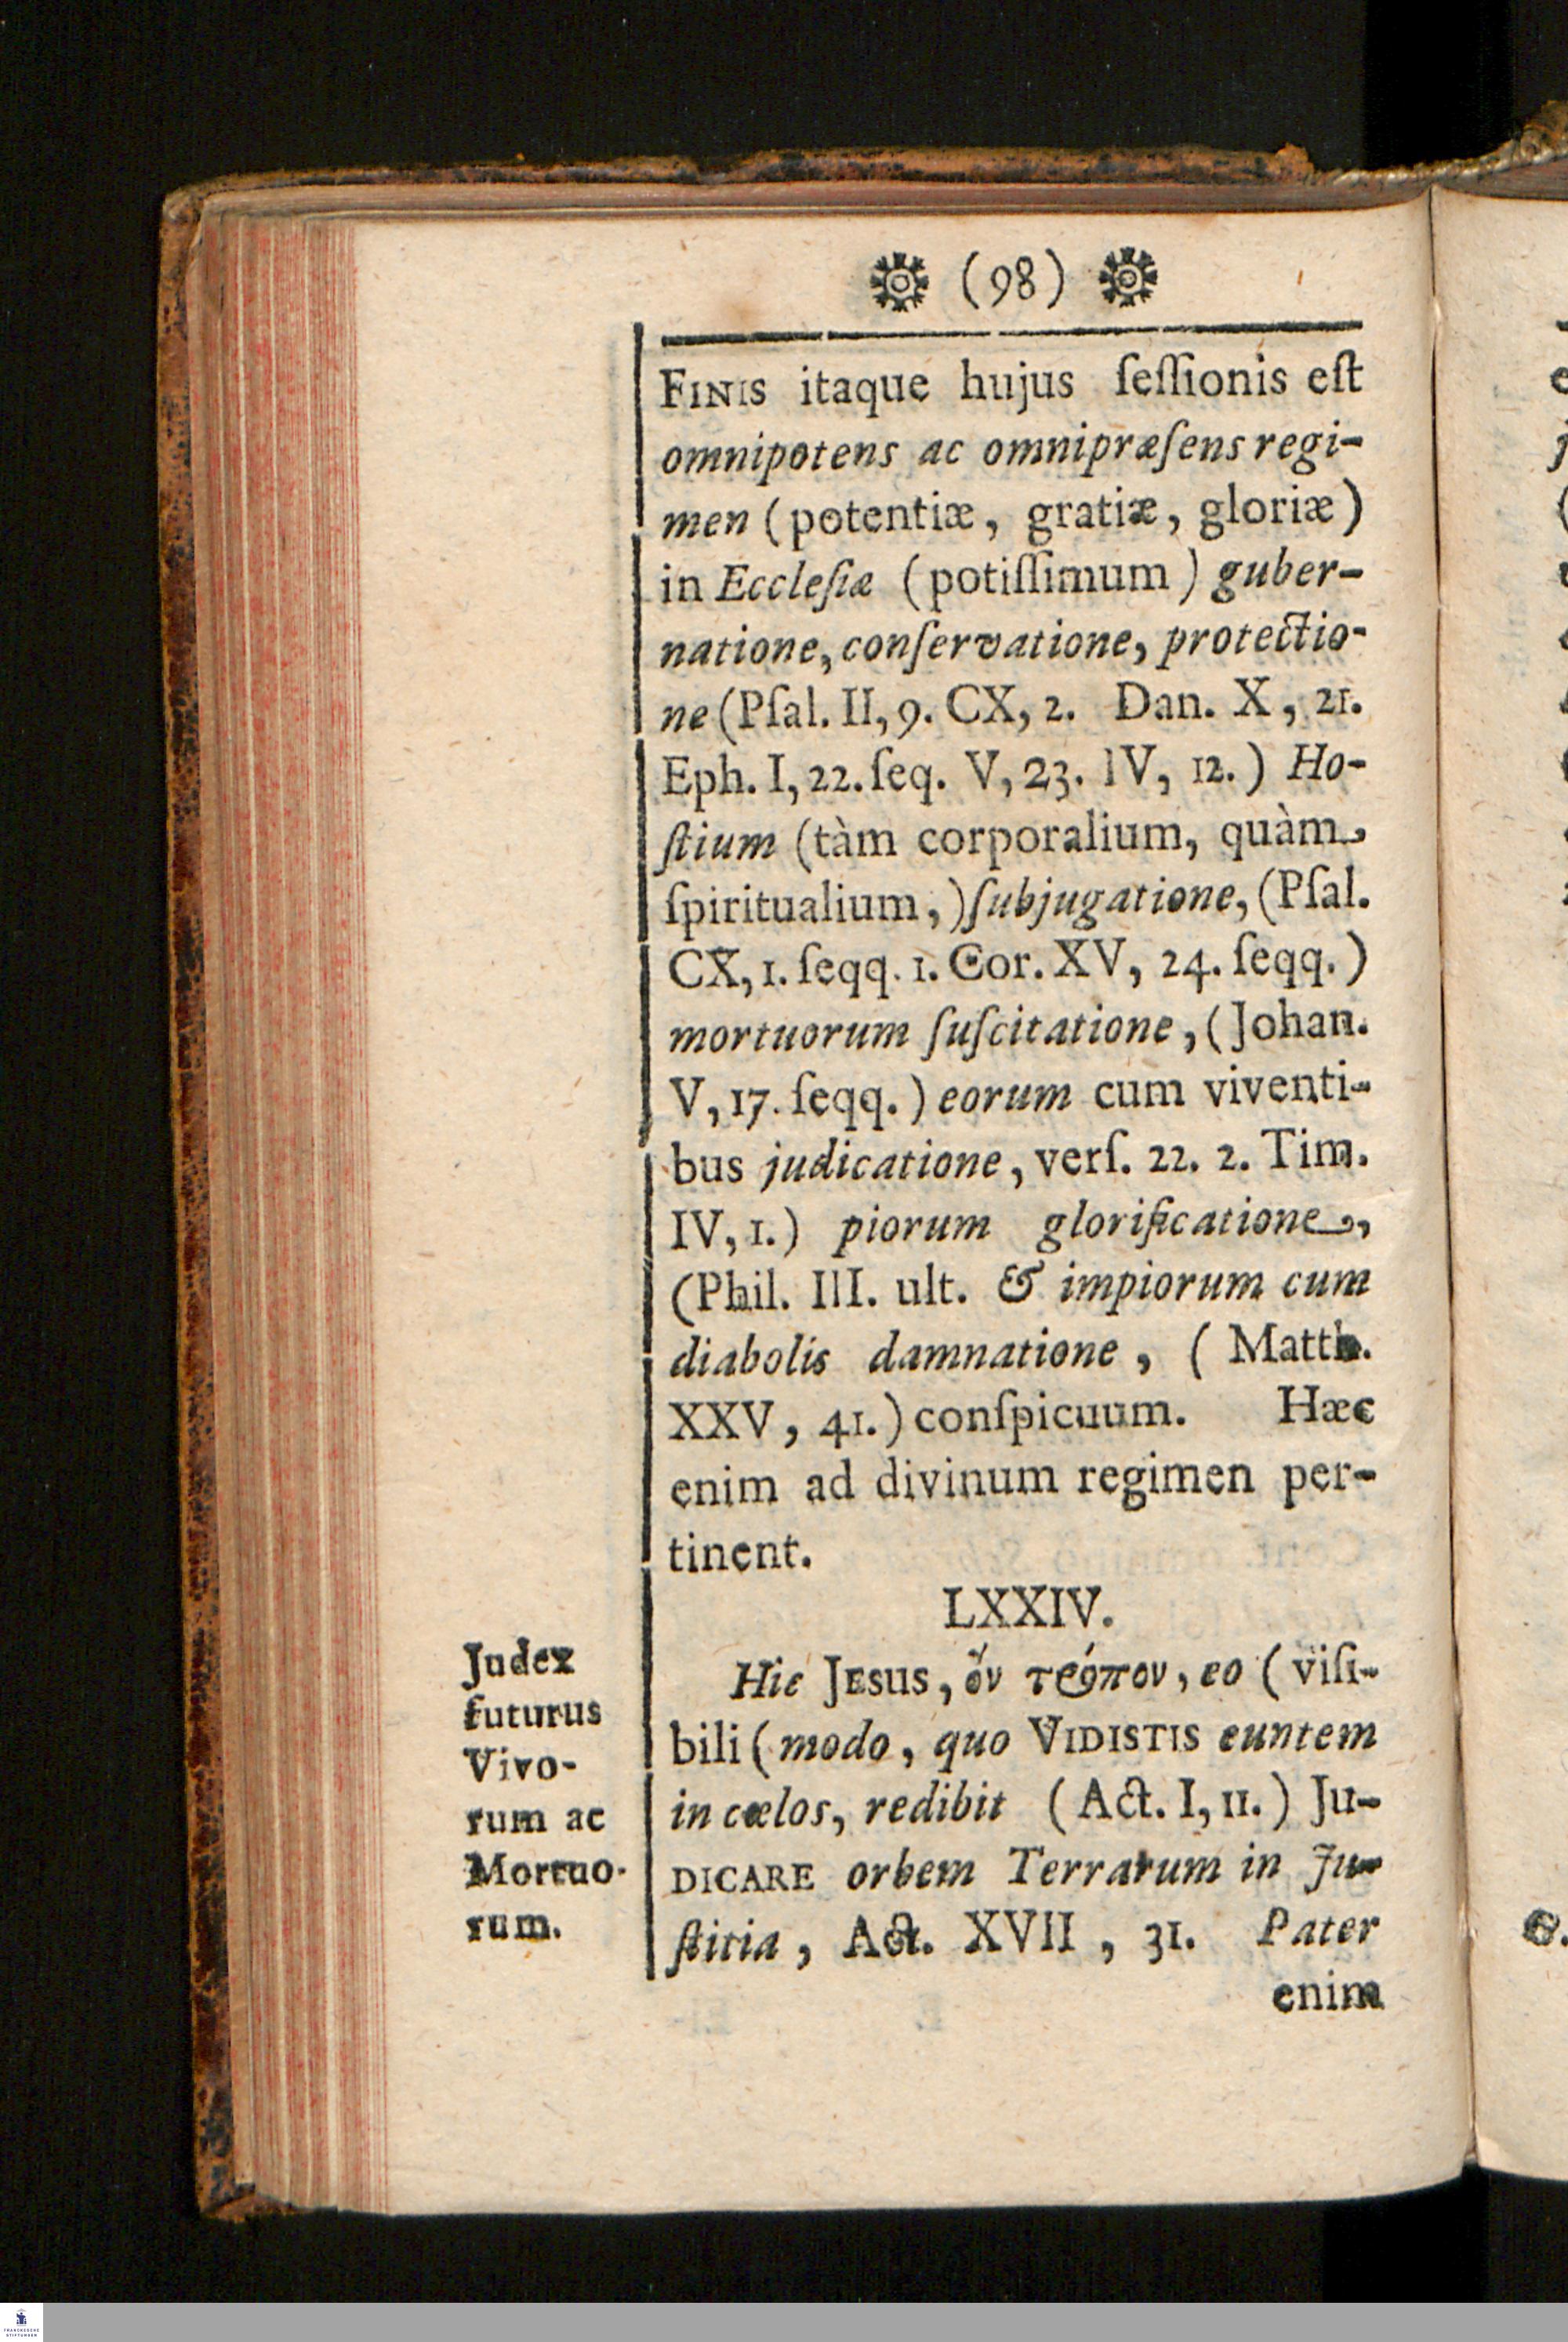 (98)
FINIS itaque hujus ſeſſionis eſt
omnipotens ac omnipræſens regi-
men (potentiæ, gratiæ, gloriæ)
in Eccleſiæ (potiſſimum) guber-
natione, conſervatione, protectio-
ne (Pſal. II, 9. CX, 2. Dan. X, 21.
Eph. I, 22. ſeq. V, 23. IV, 12.) Ho-
ſtium (tàm corporalium, quàm
ſpiritualium,) ſubjugatione, (Pſal.
CX, 1. ſeqq. 1. Cor. XV, 24. ſeqq.)
mortuorum ſuſcitatione, (Johan.
V, 17. ſeqq.) eorum cum viventi-
bus judicatione, verſ. 22. 2. Tim.
IV, 1.) piorum glorificatione,
(Phil. III. ult. & impiorum cum
diabolis damnatione, (Matth.
XXV, 41.) conſpicuum. Hæc
enim ad divinum regimen per-
tinent.
LXXIV.
Judex
futurus
Vivo-
rum ac
Mortuo-
rum.
Hic JESUS, ὃν τρόπον, eo (viſi-
bili (modo, quo VIDISTIS euntem
in cœlos, redibit (Act. I, 11.) JU-
DICARE orbem Terrarum in Ju-
ſtitia, Act. XVII, 31. Pater
enim
FRANCKESCHE
STIFTUNGEN